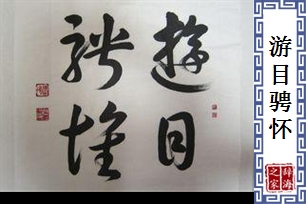 遊目
騁懷
游目骋怀
辞海
之家